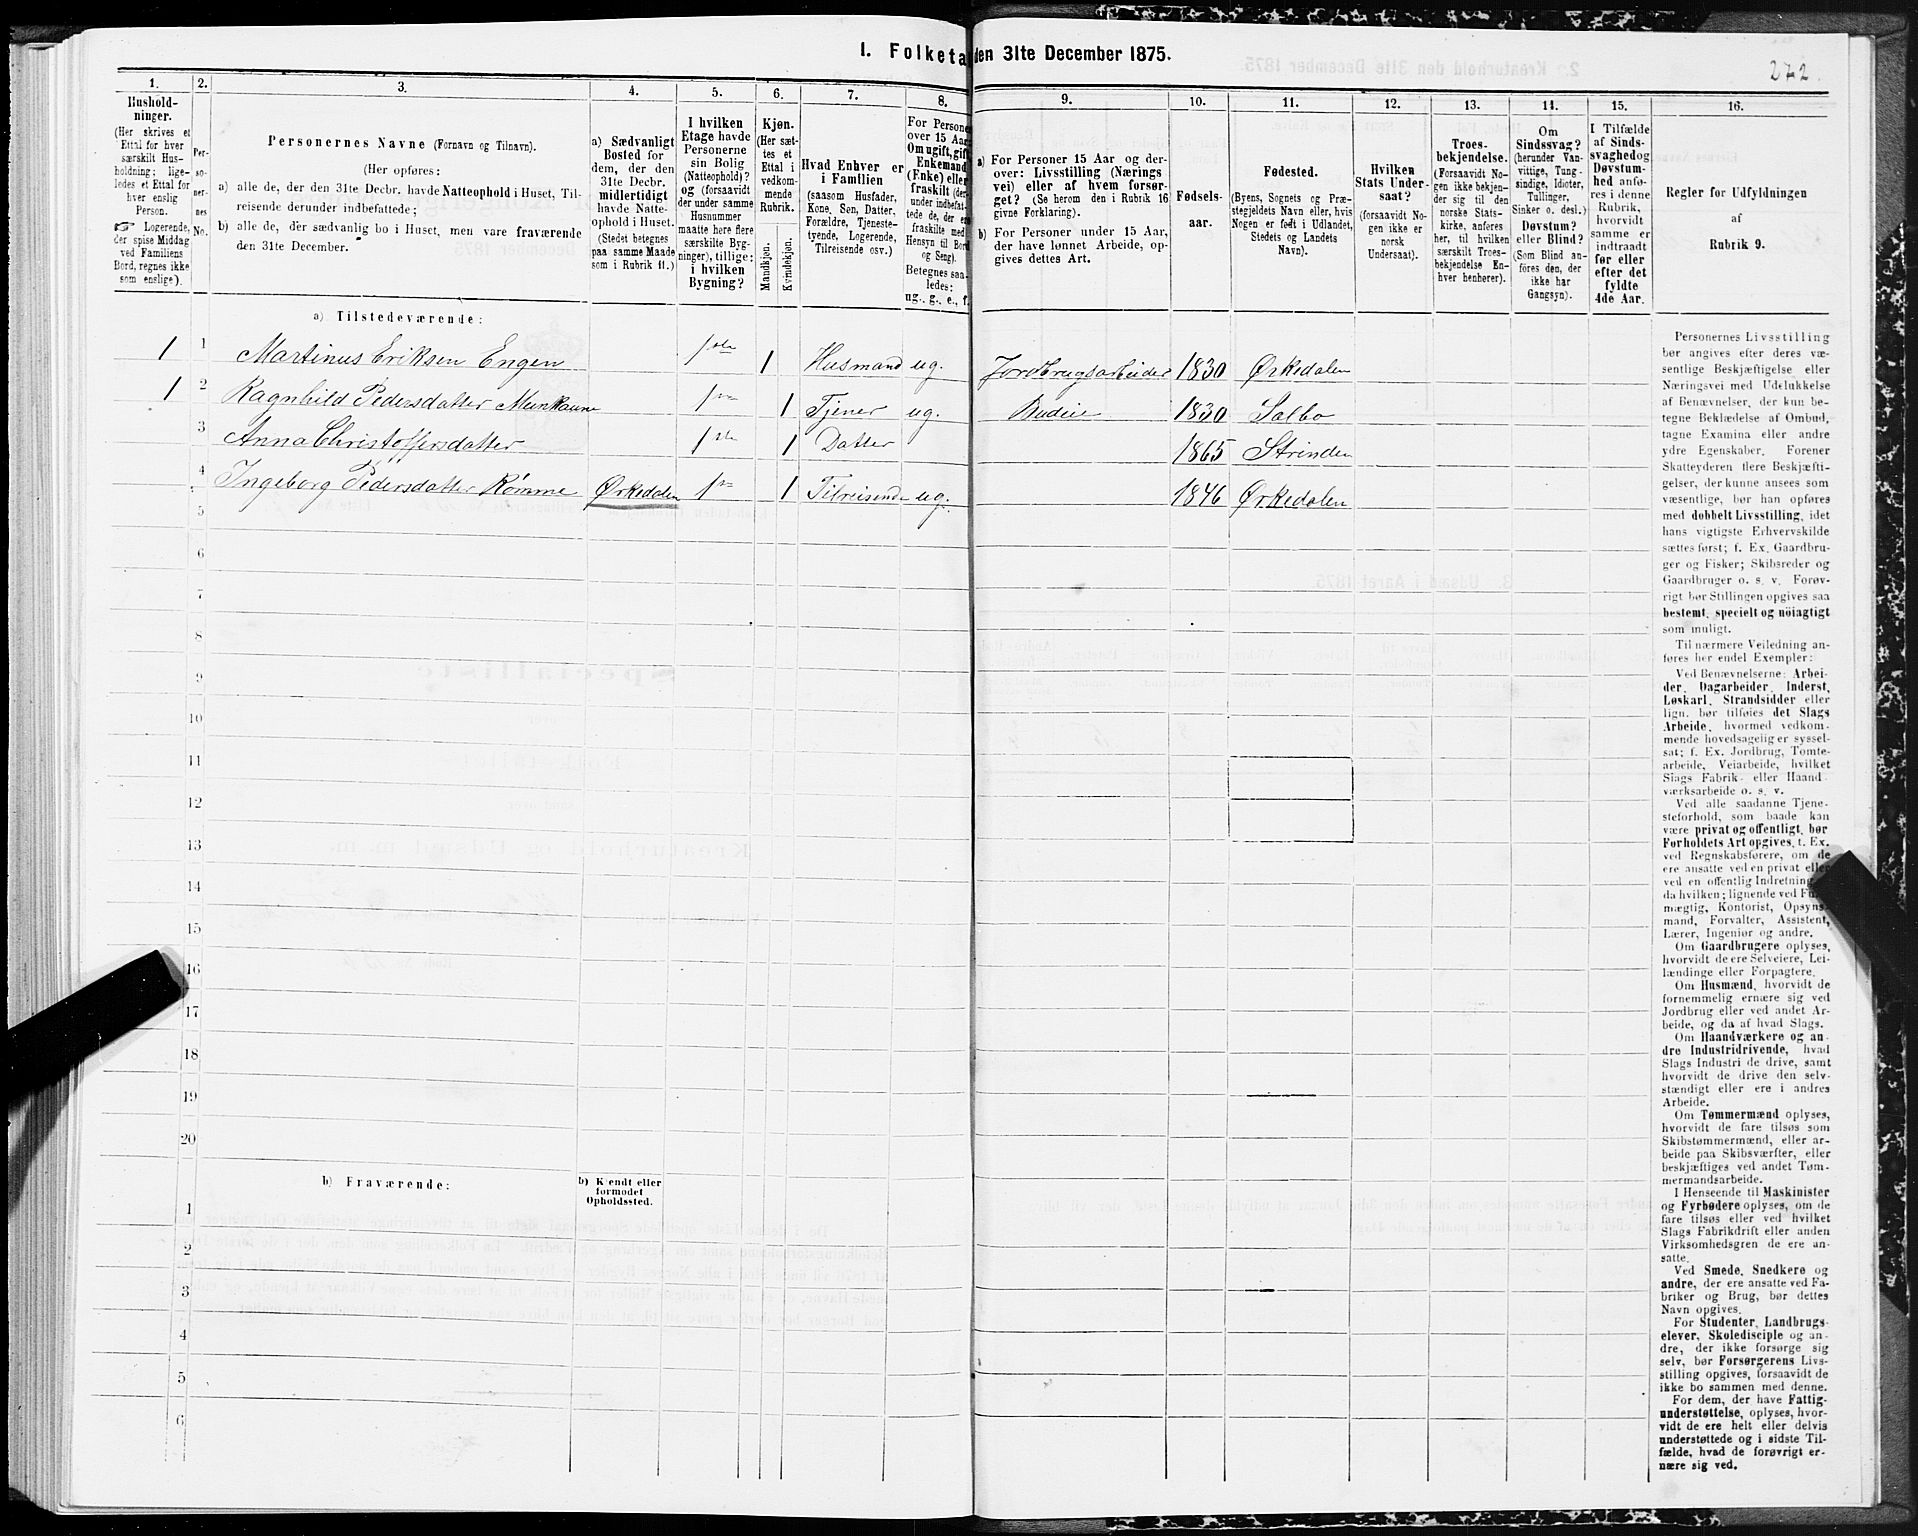 I. Folketa den 31te December 1875.
272.
1.
Hushold-
ninger.
(Her skrives et
Ettal for hver
særskilt Hus-
holdning; lige-
ledes et Ettal for
hver enslig
Person.
☞ Logerende,
der spise Middag
ved Familiens
Bord, regnes ikke
som enslige).
2.
Per-
so-
ner-
nes
No.
3.
Personernes Navne (Fornavn og Tilnavn).
(Her opføres:
a) alle de, der den 31te Decbr. havde Natteophold i Huset, Til-
reisende derunder indbefattede;
b) alle de, der sædvanlig bo i Huset, men vare fraværende
den 31te December.
4.
a) Sædvanligt
Bosted for
dem, der den
31te Decbr.
midlertidigt
havde Natte-
ophold i Huset.
(Stedet betegnes
paa samme Maade
som i Rubrik 11.)
5.
I hvilken
Etage havde
Personerne
sin Bolig
(Natteophold)?
og (forsaavidt
der under samme
Husnummer
maatte høre flere
særskilte Byg-
ninger), tillige:
i hvilken
Bygning?
6.
Kjøn.
(Her sæt-
tes et
Ettal i
vedkom-
mende
Rubrik.
Mandkjøn.
Kvindekjøn.
7.
Hvad Enhver er
i Familien
(saasom Husfader,
Kone, Søn, Datter,
Forældre, Tjeneste-
tyende, Logerende,
Tilreisende osv.)
8.
For Persone
over 15 Aar
Om ugift, gift
Enkemand
(Enke) eller
fraskilt (der-
under indbefat-
tede de, der er
fraskilte med
Hensyn til Bord
og Seng).
Betegnes saa-
ledes:
ug., g., e., f.
9.
a) For Personer 15 Aar og der-
over: Livsstilling (Nærings
vei) eller af hvem forsør-
get? (Se herom den i Rubrik 16
givne Forklaring).
b) For Personer under 15 Aar,
der have lønnet Arbeide, op-
gives dettes Art.
10.
Fødsels-
aar.
11.
Fødested.
(Byens, Sognets og Præ-
stegjeldets Navn eller, hvis
Nogen er født i Udlandet,
Stedets og Landets
Navn).
12.
Hvilken
Stats Under-
saat?
(forsaavidt No-
gen ikke er
norsk
Undersaat).
13.
Troes-
bekjendelse.
(Forsaavidt No-
gen ikke bekjen-
der sig til den
norske Stats-
kirke, anføres
her, til hvilken
særskilt Troes-
bekjendelse En-
hver henhører).
14.
Om
Sindssvag?
(herunder Van-
vittige, Tung-
sindige, Idioter,
Tullinger,
Sinker o. desl.)
Døvstum?
eller Blind?
(Som Blind an-
føres den, der
ikke har
Gangsyn).
15.
I Tilfælde
af Sinds-
svaghed og
Døvstum-
hed anfø-
res i denne
Rubrik,
hvorvidt
samme er
indtraadt
før eller
efter det
fyldte
4de Aar.
16.
Regler for Udfyldningen
af
Rubrik 9.
a) Tilstedeværende:
1 1 Martinus Eriksen Engen 1ste 1 Husmand ug. Jordbrugsarbeider 1830 Ørkedalen
1 2 Ragnhild Pedersdatter Munkaune 1ste 1 Tjener ug. Budeie 1830 Salbo
3 Anna Christoffersdatter 1ste 1 Datter 1865 Strinden
4 Ingeborg Pedersdatter Rømme Ørkedalen 1ste 1 Tilreisende ug. 1846 Ørkedalen
5
6
7
8
9
10
11
12
13
14
15
16
17
18
19
20
b) Fraværende:
b) Kjendt eller
formodet
Opholdssted.
1
2
3
4
5
6
Personernes Livsstilling
bør angives efter deres væ-
sentlige Beskjæftigelse eller
Næringsvei med Udelukkelse
af Benævnelser, der kun be-
tegne Beklædelse af Ombud,
tagne Examina eller andre
ydre Egenskaber. Forener
Skatteyderen flere Beskjæfti-
gelser, der kunne ansees som
væsentlige, bør han opføres
med dobbelt Livsstilling, idet
hans vigtigste Erhvervskilde
sættes først; f. Ex. Gaardbru-
ger og Fisker; Skibsreder og
Gaardbruger o. s. v. Forøv-
rigt bør Stillingen opgives saa
bestemt, specielt og nöiagtigt
som muligt.
Til nærmere Veiledning an-
føres her endel Exempler:
Ved Benævnelserne: Arbei-
der, Dagarbeider, Inderst,
Løskarl, Strandsidder eller
lign. bør tilføies det Slags
Arbeide, hvormed vedkom-
mende hovedsagelig er syssel-
sat; f. Ex. Jordbrug, Tomte-
arbeide, Veiarbeide, hvilket
Slags Fabrik- eller Haand-
værksarbeide o. s. v.
Ved alle saadanne Tjene-
steforhold, som baade kan
være privat og offentligt, bør
Forholdets Art opgives, t. Ex.
ved Regnskabsførere, om de
ere ansatte ved en privat eller
ved en offentlig Indretning
da hvilken; lignende ved Fuld-
mægtig, Kontorist, Opsyns-
mand, Forvalter, Assistent,
Lærer, Ingeniør og andre.
Om Gaardbrugere oplyses,
hvorvidt de ere Selveiere, Lei-
lændinge eller Forpagtere.
Om Husmænd, hvorvidt de
fornemmelig ernære sig ved
Jordbrug eller ved andet Ar-
beide, og da af hvad Slags.
Om Haandværkere og an-
dre Industridrivende, hvad
Slags Industri de drive, samt
hvorvidt de drive den selv-
stændigt eller ere i andres
Arbeide.
Om Tømmermænd oplyses,
hvorvidt de fare tilsøs som
Skibstømmermænd, eller ar-
beide paa Skibsværfter, eller
beskjæftiges ved andet Tøm-
mermandsarbeide.
I Henseende til Maskinister
og Fyrbødere oplyses, om de
fare tilsøs eller ved hvilket
Slags Fabrikdrift eller anden
Virksomhedsgren de ere an-
satte.
Ved Smede, Snedkere og
andre, der ere ansatte ved Fa-
briker og Brug, bør dettes
Navn opgives.
For Studenter, Landbrugs-
elever, Skoledisciple og an-
dre, der ikke forsørge sig
selv, bør Forsørgerens Livs-
stilling opgives, forsaavidt de
ikke bo sammen med denne.
For dem, der have Fattig-
understøttelse, oplyses, hvor-
vidt de ere helt eller delvis
understøttede og i sidste Til-
fælde, hvad de forøvrigt er-
nære sig ved.